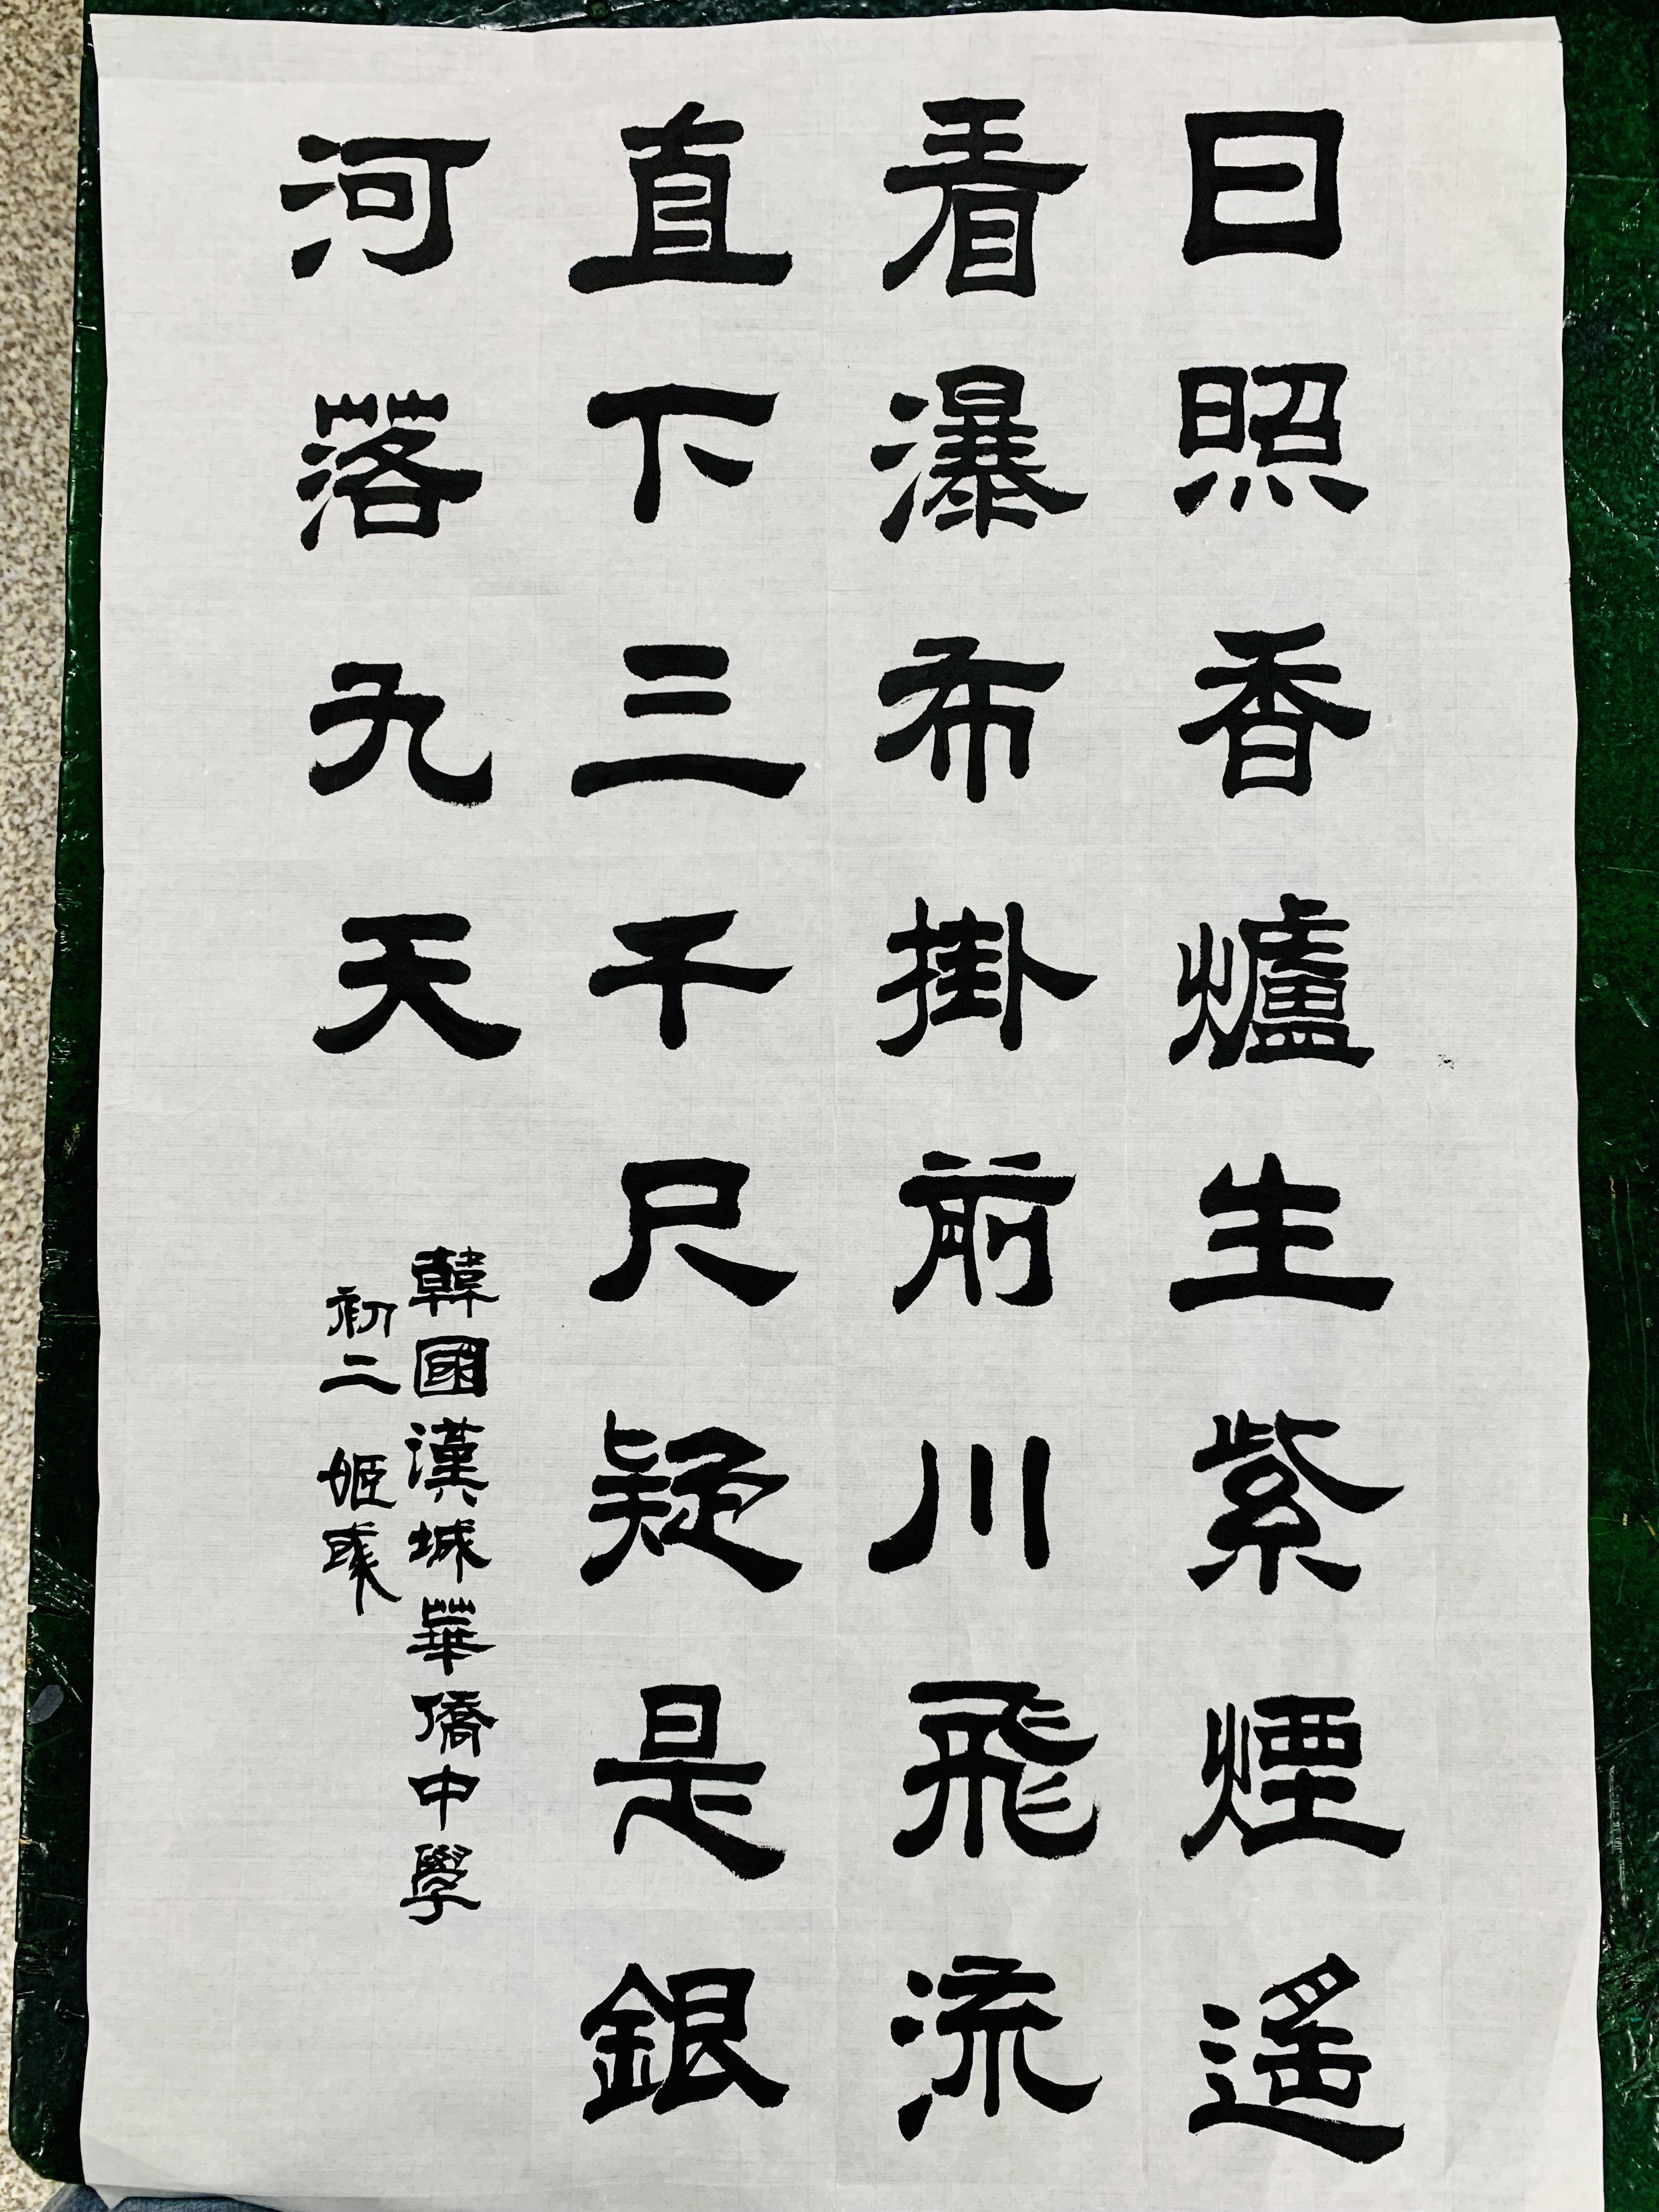 日照香爐生紫煙遙
看瀑布掛前川飛流
直下三千尺疑是銀
河落九天
韓國漢城華僑中學
初二 姬彧